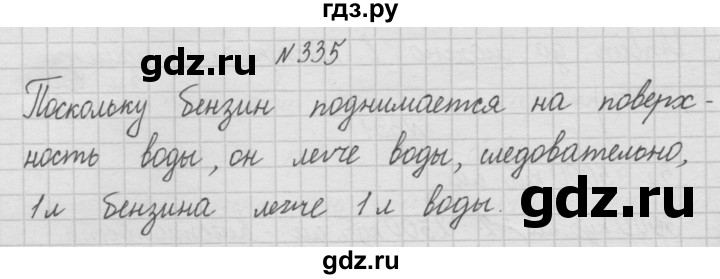 гдз.ру
№335
Поскольку бензин поднимается на поверх-
ность воды, он легче воды, следовательно,
1л бензина легче 1л воды.
gdz.ru
gdz.ru